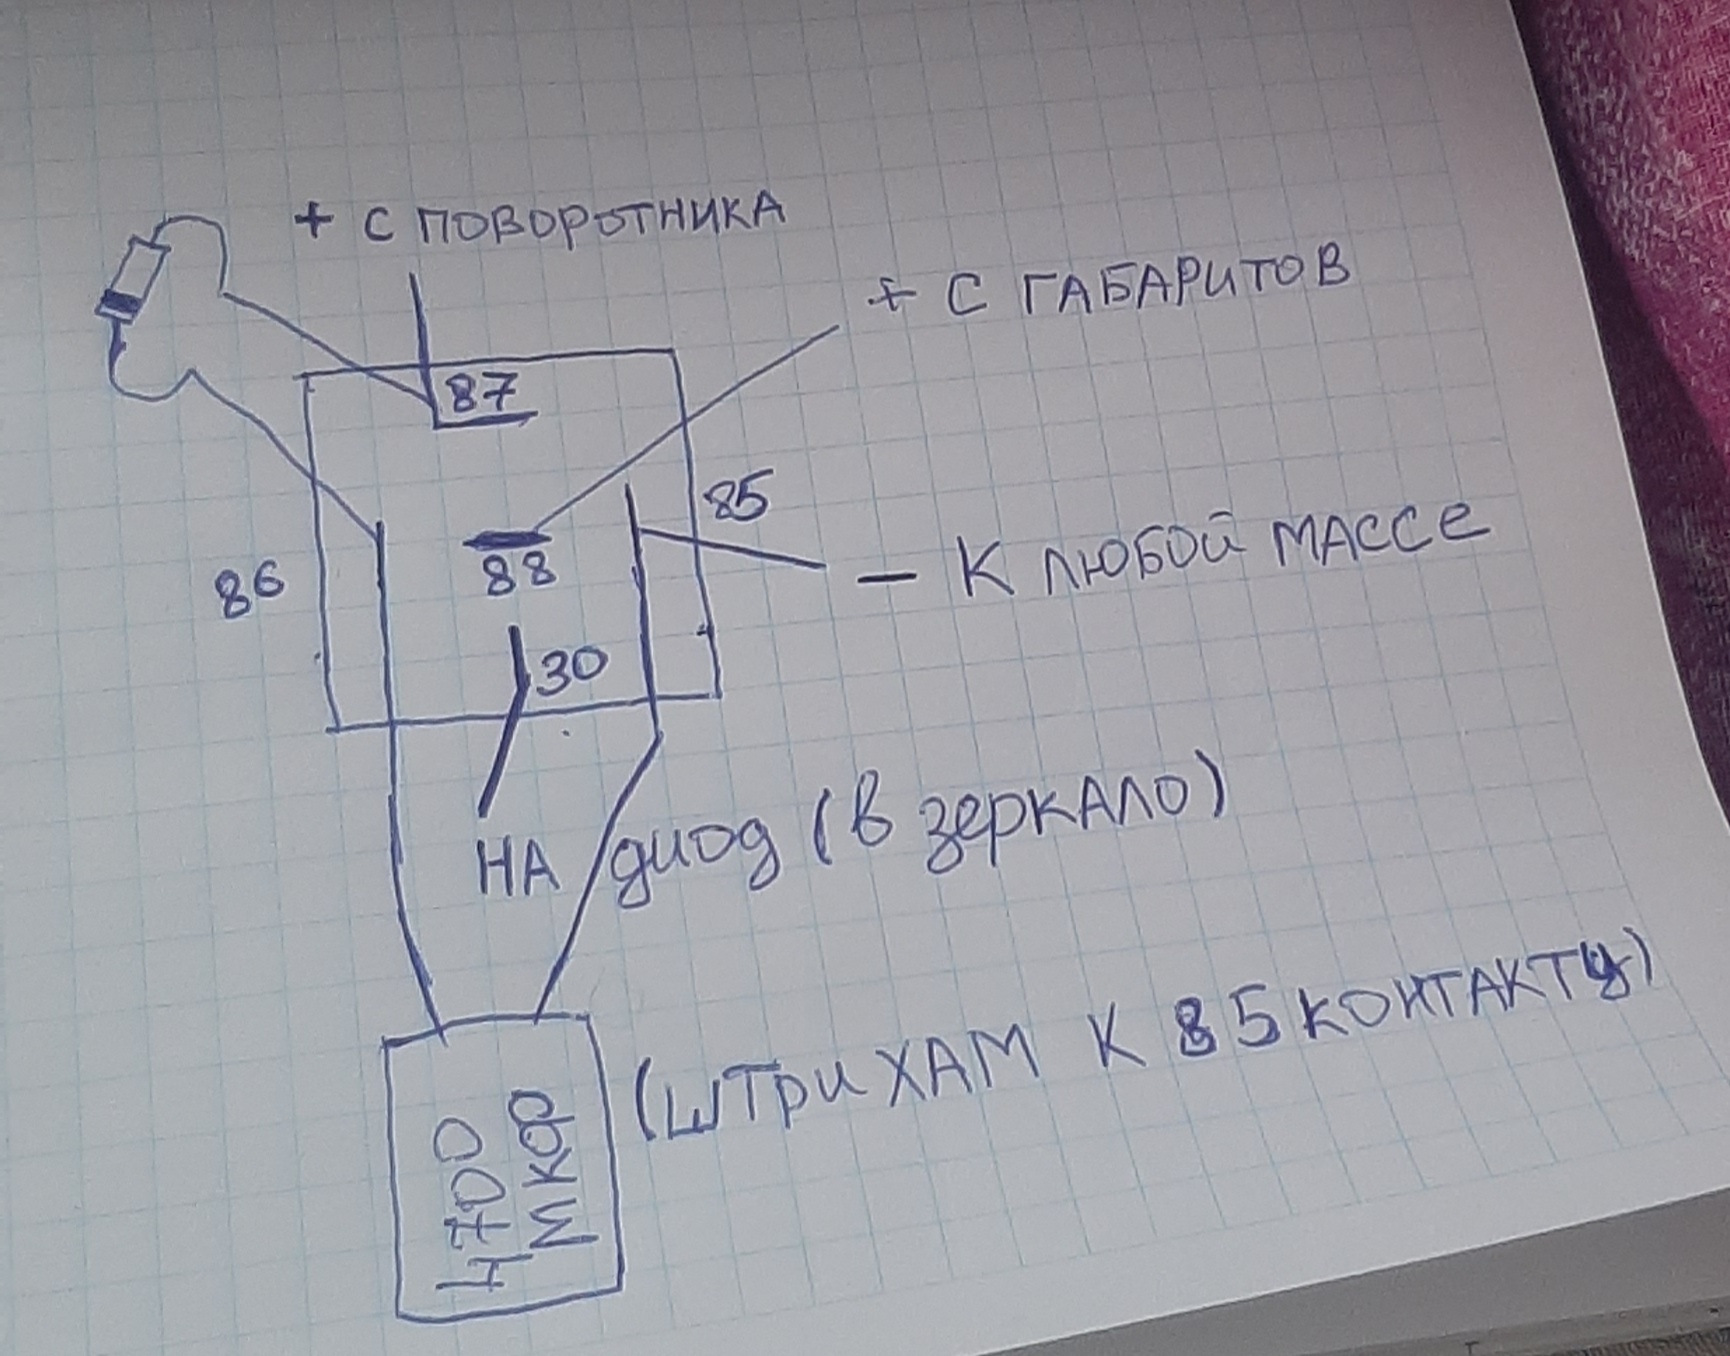 + С ПОВОРОТНИКА
+ С ГАБАРИТОВ
87
85
86
88
— К ЛЮБОЙ МАССЕ
30
НА ДИОД (В ЗЕРКАЛО)
(ШТРИХАМ К 85 КОНТАКТУ)
4700
МКФ